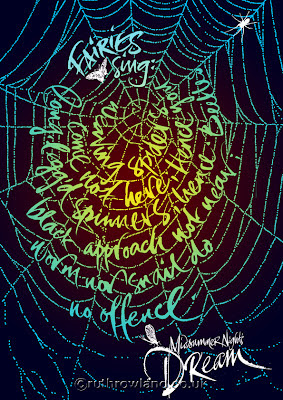 FAIRIES
sing:
weaving spiders
Come not here. Hence you
Longlegg'd spinners hence Beetles
black approach not near
worm nor snail do
no offence.
Midsummer Night's
DREAM
©ruthrowland.co.uk